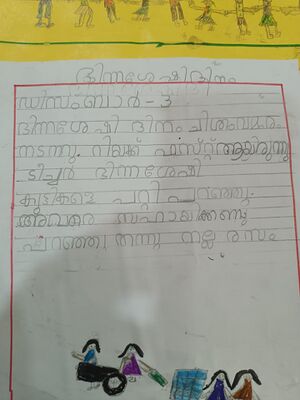 ഭിന്നശേഷിദിനം
ഡിസംബർ - 3
ഭിന്നശേഷി ദിനം ചിത്രംവരം
നടന്നു. നിലക്ക് ഫസ്റ്റ് ആയിരുന്നു
ടീച്ചർ ഭിന്നശേഷി
കുട്ടികളെ പറ്റി പറഞ്ഞു.
അവരെ സഹായിക്കണം
പറഞ്ഞു തന്നു നല്ല രസം